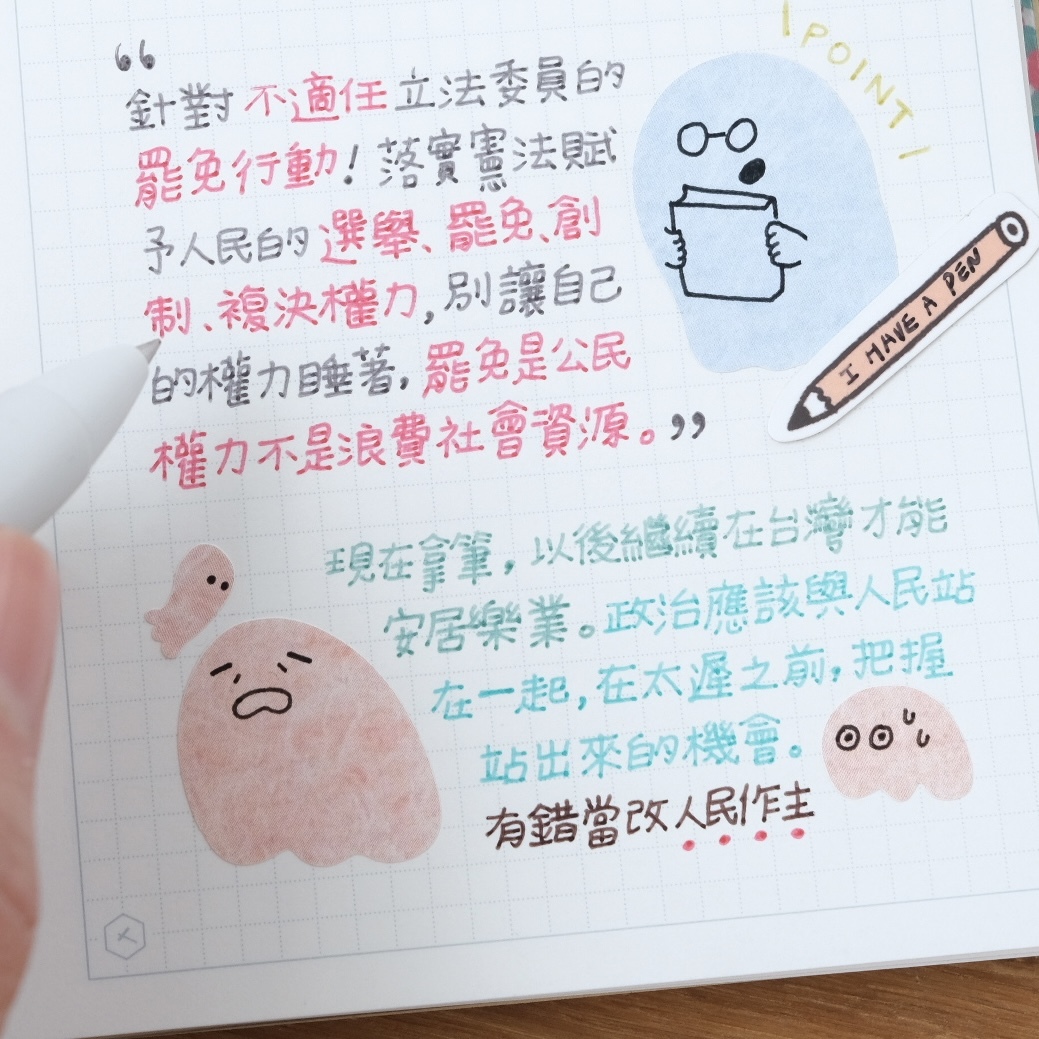 “
針對不適任立法委員的
罷免行動!落實憲法賦
予人民的選舉、罷免、創
制、複決權力,別讓自己
的權力睡著,罷免是公民
權力不是浪費社會資源。”
POINT
I HAVE A PEN
現在拿筆,以後繼續在台灣才能
安居樂業。政治應該與人民站
在一起,在太遲之前,把握
站出來的機會。
有錯當改人民作主